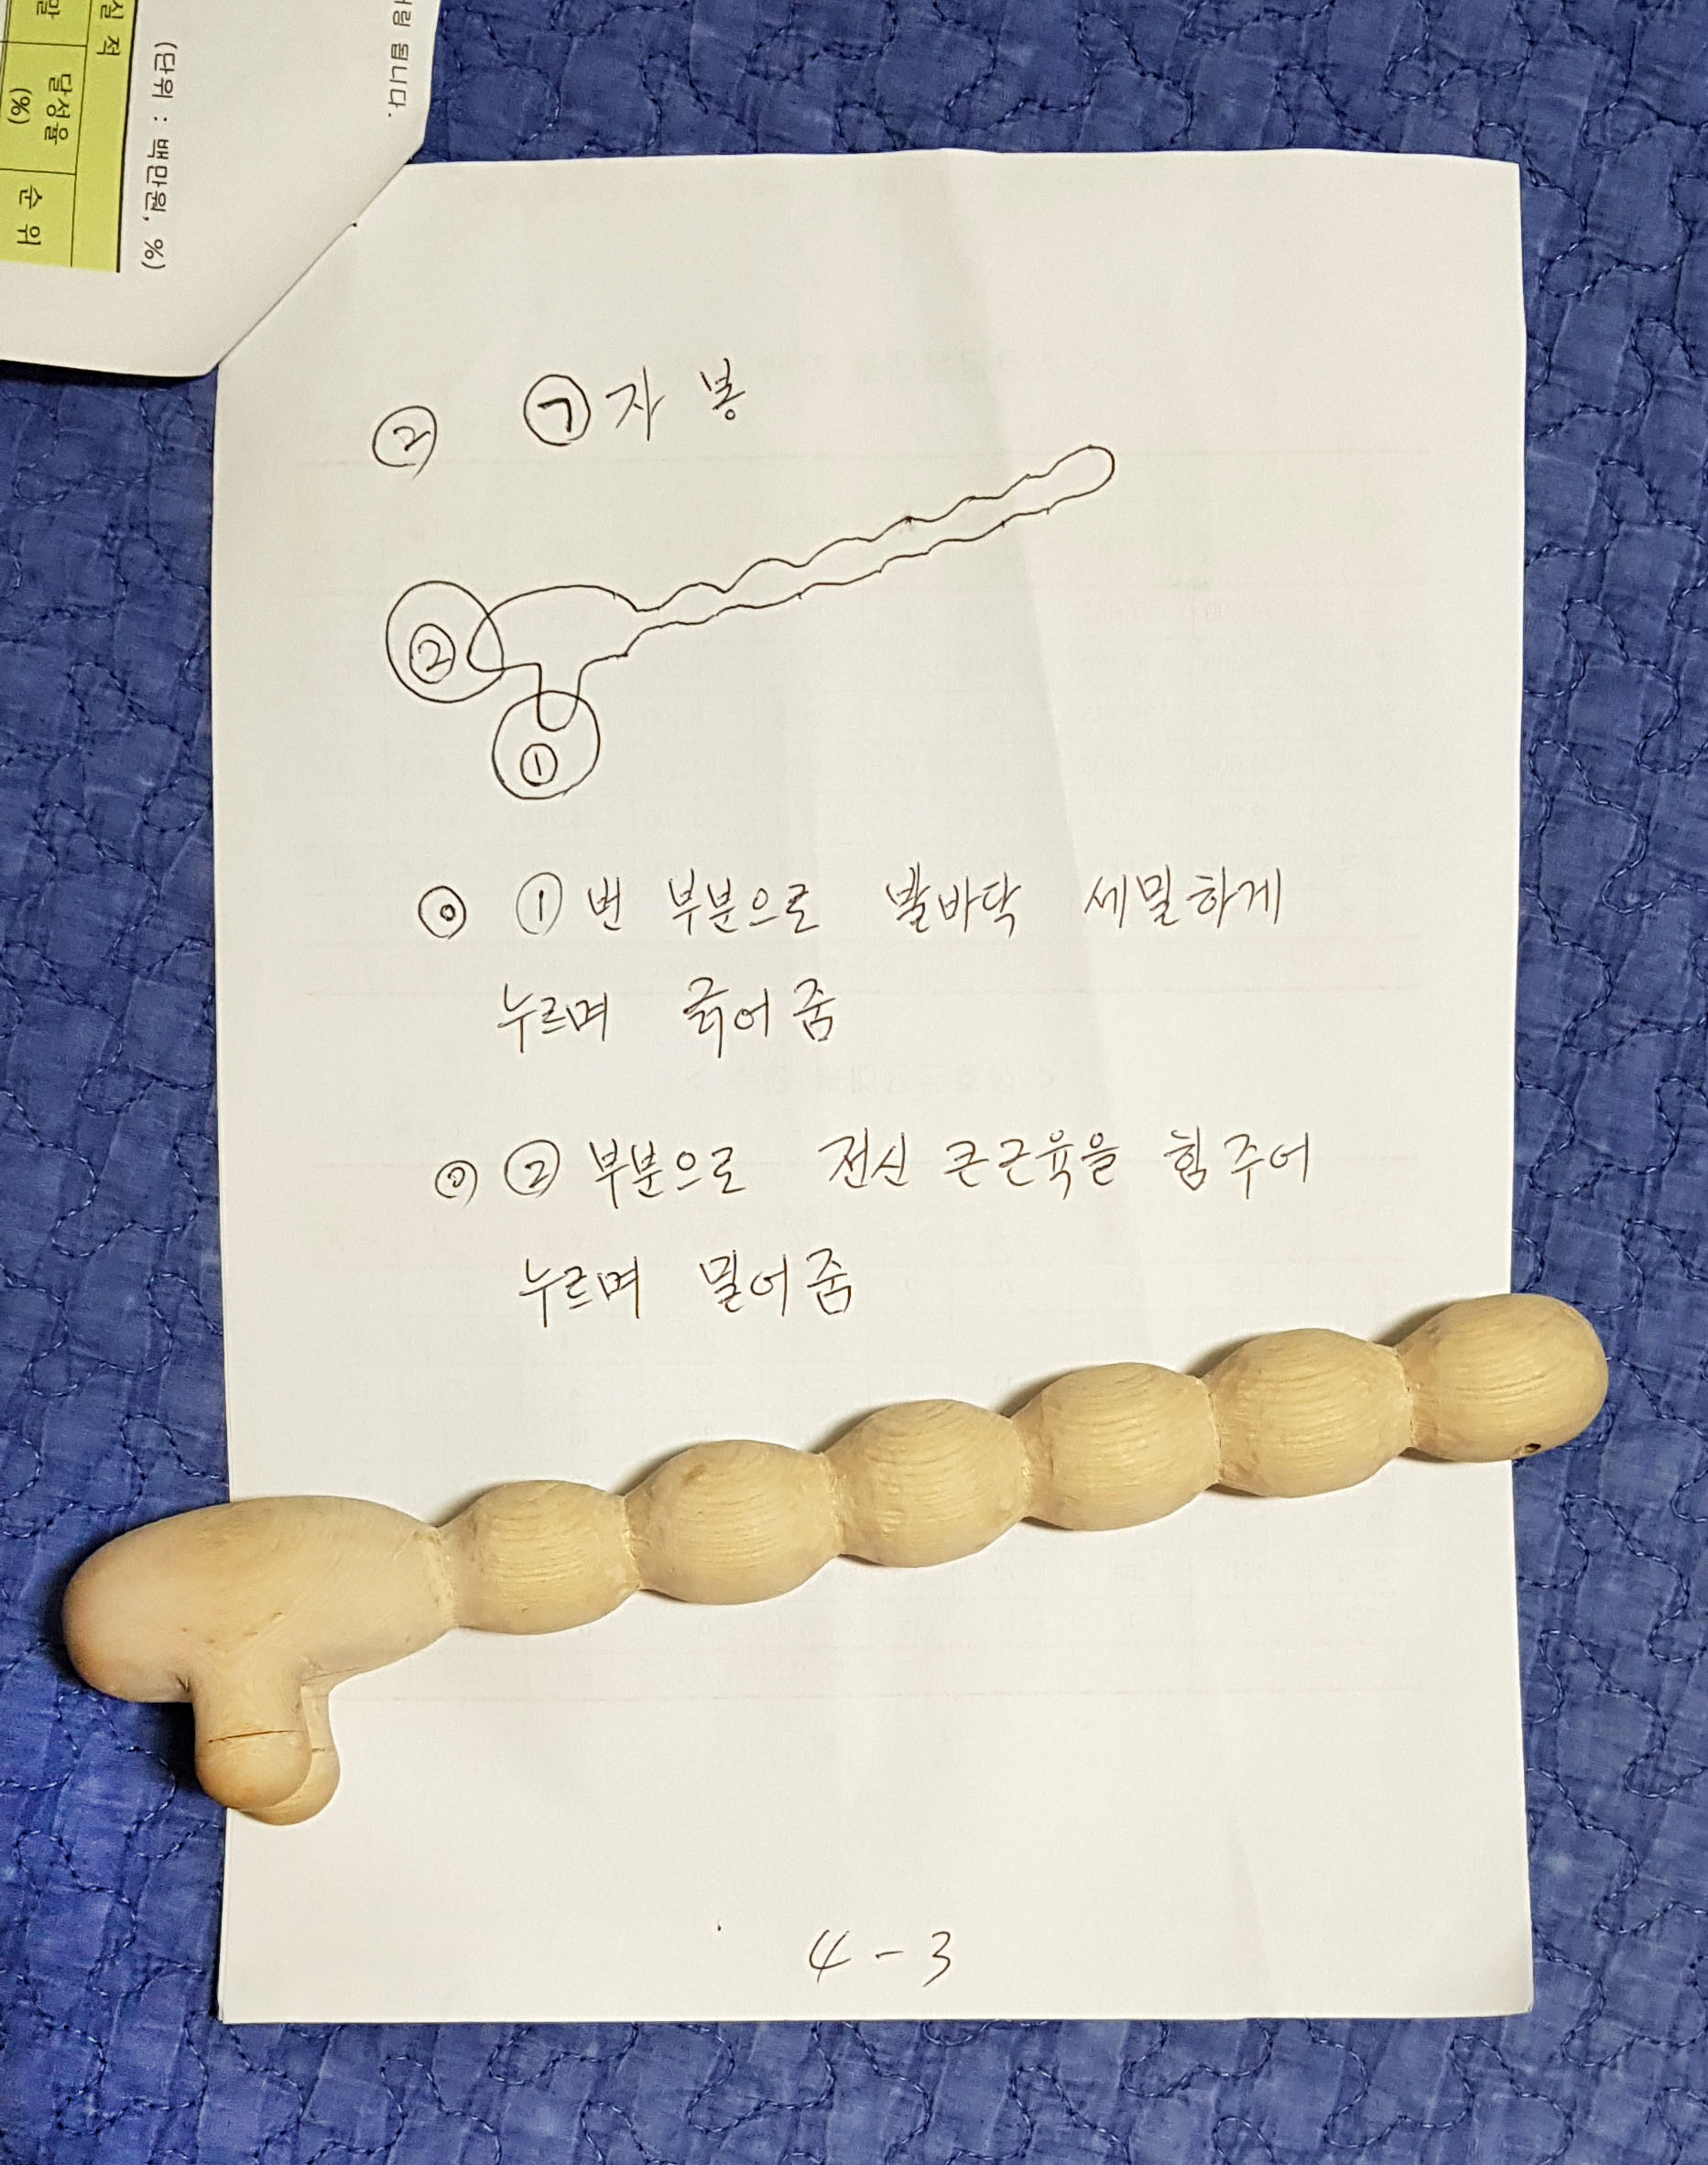 랑 됩니다.
(단위 : 백만원, %)
실 적
말
달성율
(%)
순 위
② ㉠자 봉
②
①
◎ ①번 부분으로 발바닥 세밀하게
누르며 긁어줌
◎ ② 부분으로 전신 큰근육을 힘주어
누르며 밀어줌
4-3